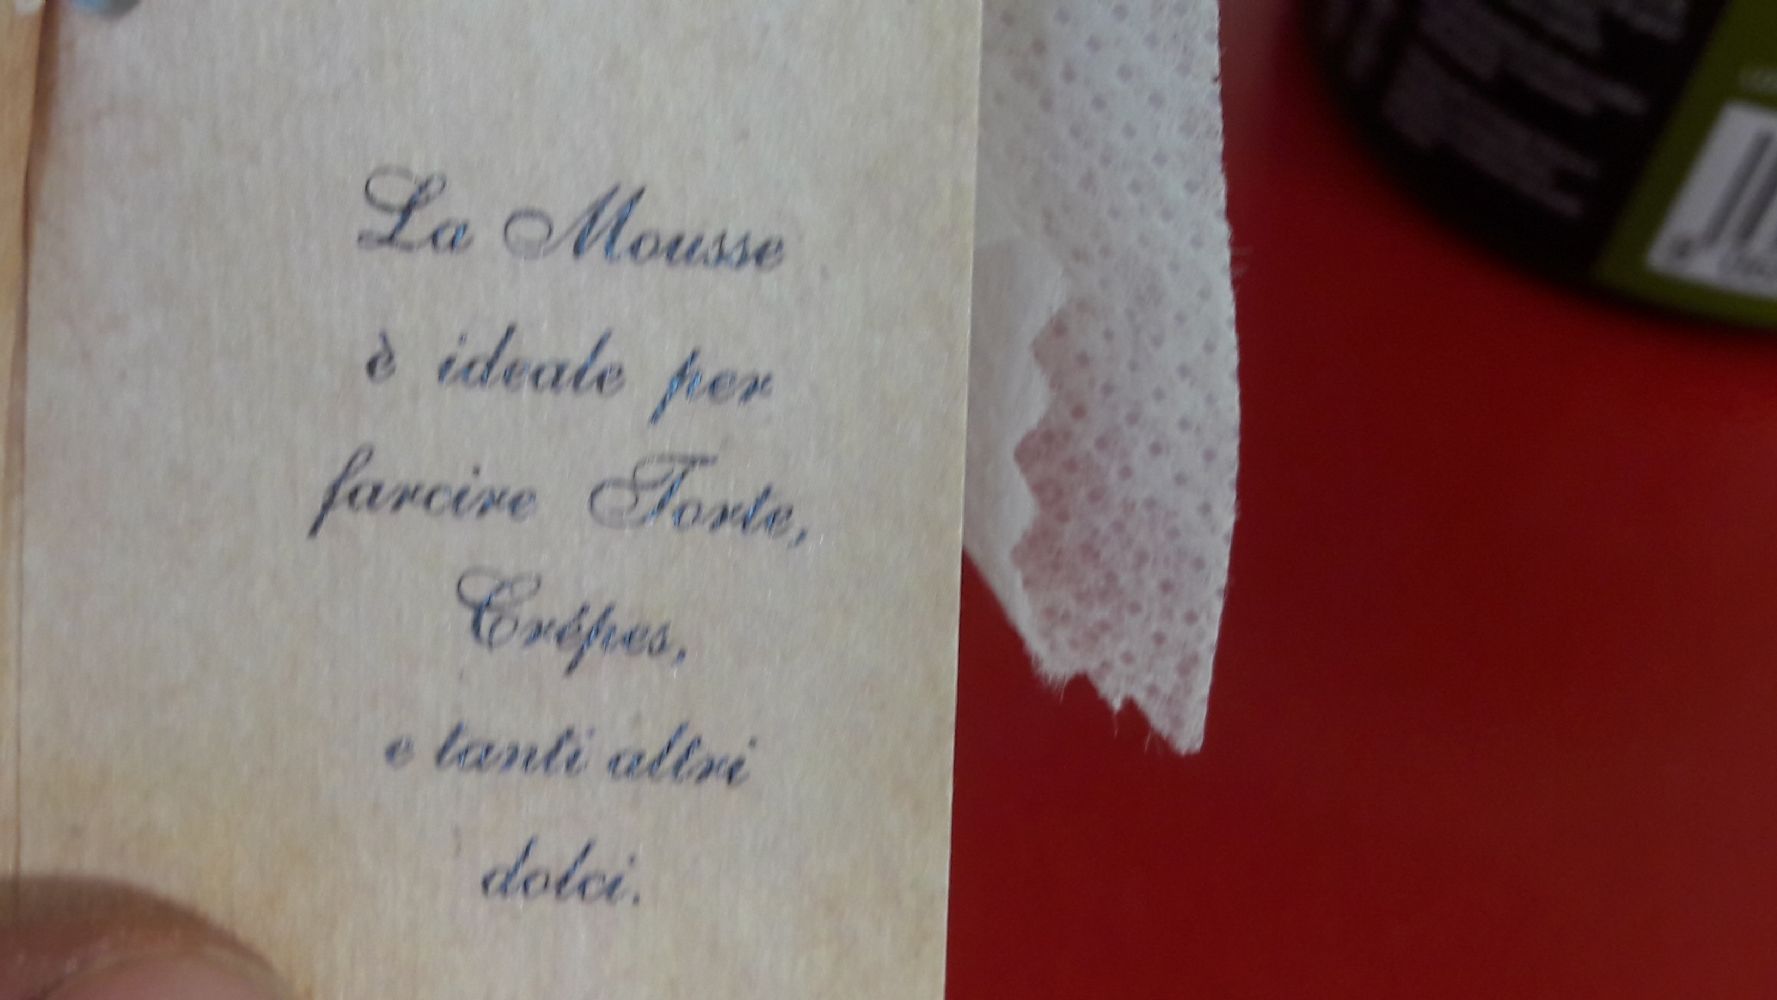 La Mousse
è ideale per
farcire Torte,
Crépes,
e tanti altri
dolci.